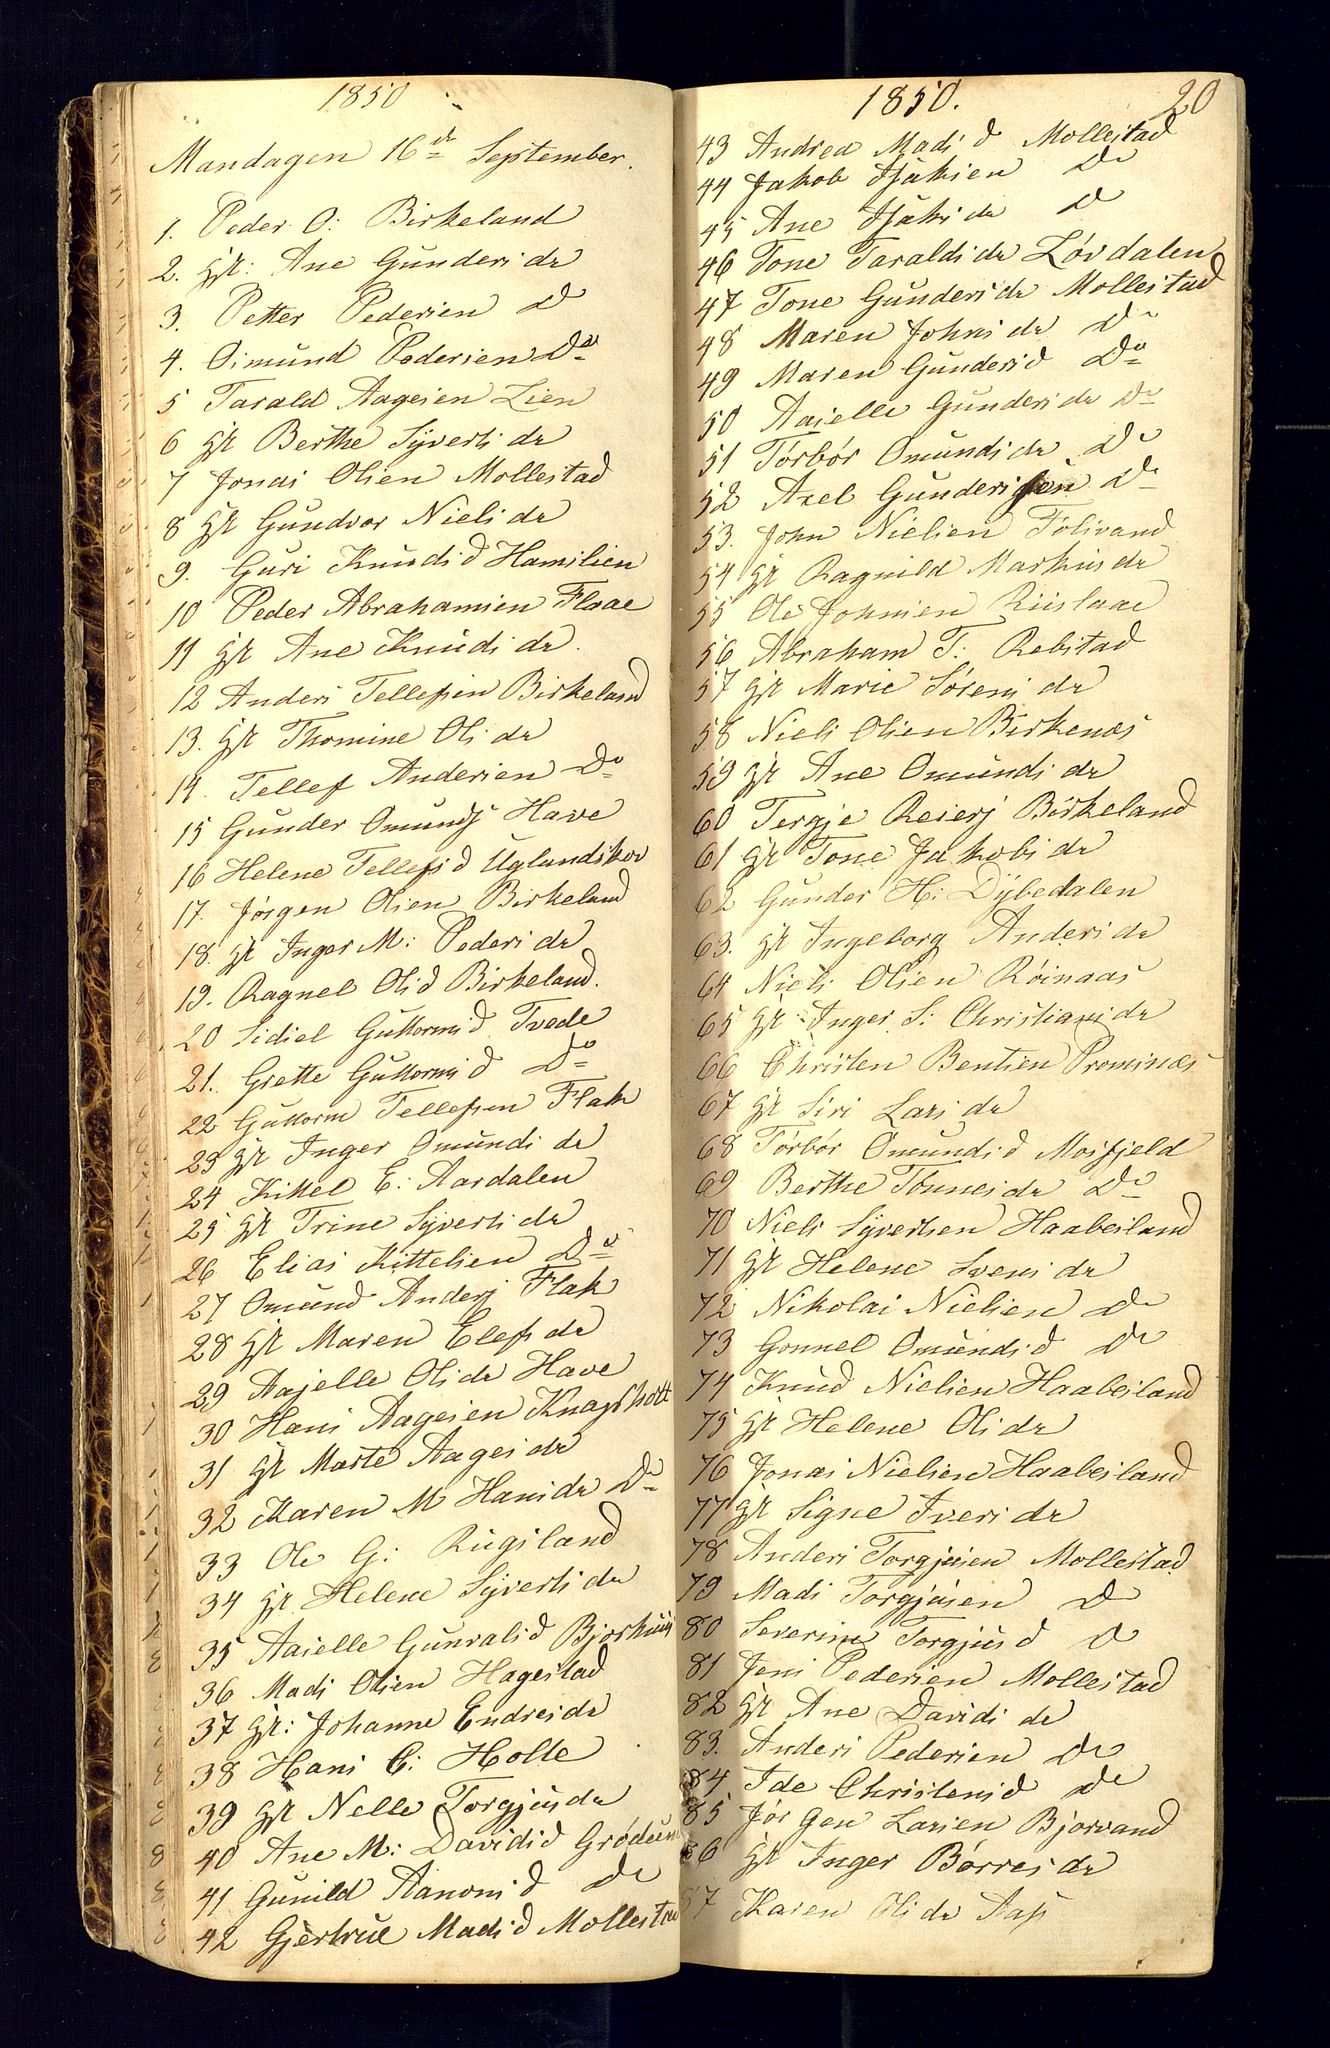 1850
Mandagen 16de September.
1. Peder O: Birkeland
2. Hst: Ane Gunders dr
3. Petter Pedersen Do
4. Osmund Pedersen Do
5 Tarald Aagesen Lien
6 Hst Berthe Syverts dr
7 Jonas Olsen Mollestad
8 Hst Gundvor Niels dr
9. Guri Knudsd Hamslien
10 Peder Abrahamsen Flaae
11 Hst Ane Knuds dr.
12 Anders Tellefsen Birkeland
13. Hst Thomine Ols dr
14. Tellef Andersen Do
15 Gunder Omunds Have
16 Helene Tellefsd Uglandskov
17. Jørgen Olsen Birkeland
18. Hst Inger M: Peders dr
19. Ragnel Olsd Birkeland.
20 Sidsel Guttormsd Tvede
21. Grette Guttormsd Do
22 Guttorm Tellefsen Flak
23 Hst Inger Omunds dr
24 Kittel E: Aardalen
25 Hst Trine Syverts dr
26 Elias Kittelsen Do
27 Omund Anders Flak
28 Hst Maren Elefs dr
29 Aasjelle Ols dr Have
30 Hans Aagesen
31 Hst Marte Aages dr
32 Karen M Hansdr Do
33 Ole G: Rugsland
34 Hst Helene Syverts dr
35 Aaselle Gunvalsd Bjorhuus
36 Mads Olsen Hagestad
37 Hst: Johanne Endresdr
38 Hans C: Holte
39 Hst Nelle Torgjusdr
40 Ane M: Davidsd Grødeum
41 Gunild Aanonsd Do
42 Gjertrue Madsd Mollestad
1850. 20
43 Andrea Madsd Mollestad
44 Jakob Isaksen Do
45 Ane Isaks dr Do
46 Tone Taralds dr Løvdalen
47 Tone Gunders dr Mollestad
48 Maren Johns dr Do
49 Maren Gundersd Do
50 Aaselle Gunders dr Do
51 Torbor Omunds dr Do
52 Axel Gundersen Do
53. John Nielsen Tolivand
54 Hst Ragnild Markus dr
55 Ole Johnsen Riislaae
56 Abraham T: Rebstad
57 Hst Marie Sørens dr
58 Niels Olsen Birkenæs
59 Hst Ane Omunds dr
60 Tergje Reiers Birkeland
61 Hst Tone Jakobs dr
62 Gunder H: Dybedalen
63. Hst Ingeborg Anders dr
64 Niels Olsen Røinaas
65 Hst Inger S: Christians dr
66 Christen Bentsen Prominæs
67 Hst Siri Lars dr
68 Torbor Omundsd Mosfjeld
69 Berthe Tønnesdr Do
70 Niels Syvertsen Haabesland
71 Hst Helene Svens dr
72 Nikolai Nielsen Do
73 Gonnel Omundsd Do
74 Knud Nielsen Haabesland
75 Hst Helene Ols dr
76 Jonas Nielsen Haabesland
77 Hst Signe Ivers dr
78 Anders Torgjusen Mollestad
79 Mads Torgjusen Do
80 Severine Torgjusd Do
81 Jens Pedersen Mollestad
82 Hst Ane Davids dr
83. Anders Pedersen Do
84 Ide Christensd Do
85 Jørgen Larsen Bjorvand
86 Hst Inger Børres dr
87 Karen Ols dr Aas